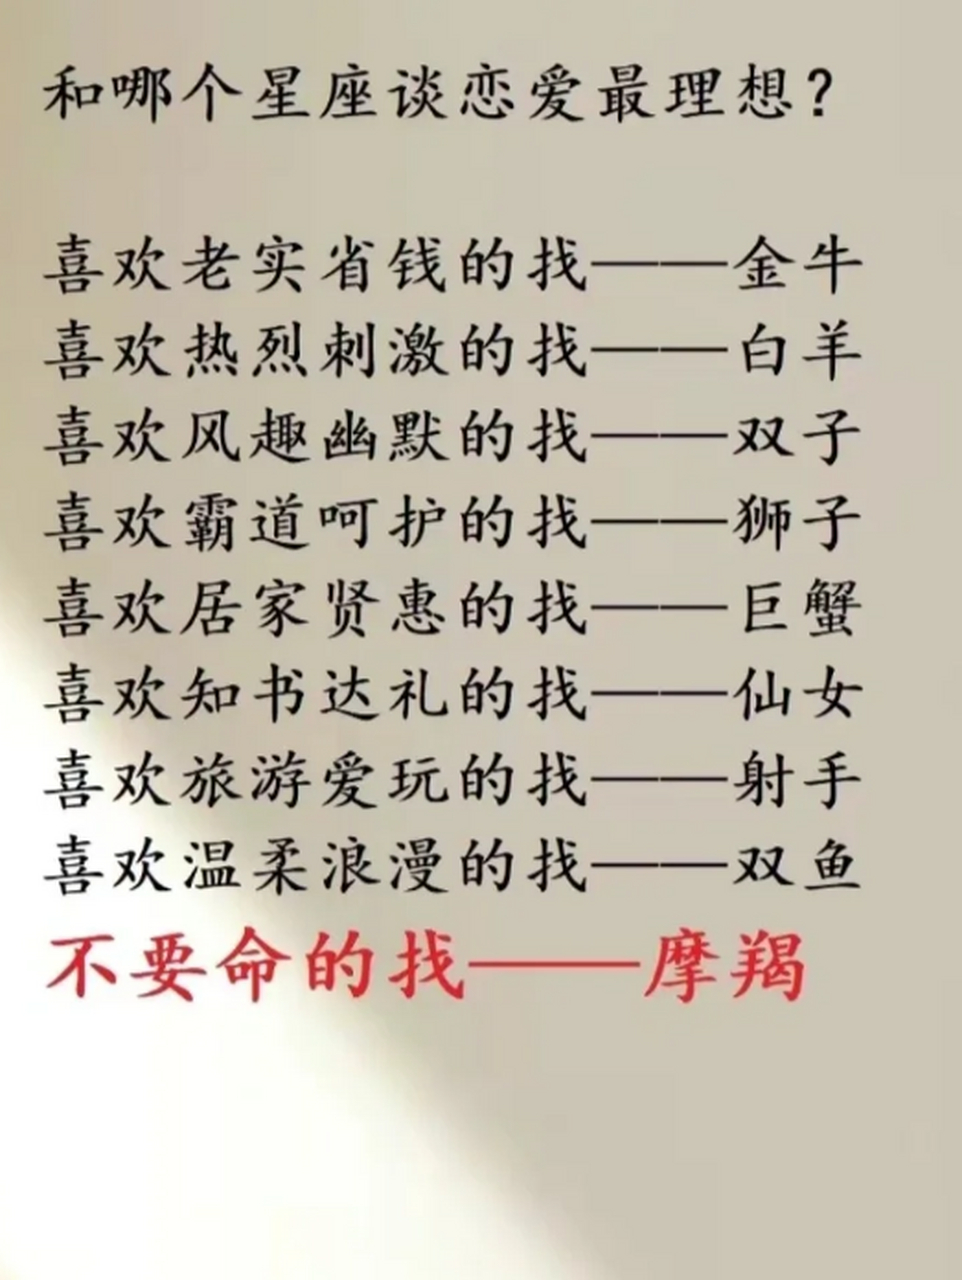 和哪个星座谈恋爱最理想？
喜欢老实省钱的找——金牛
喜欢热烈刺激的找——白羊
喜欢风趣幽默的找——双子
喜欢霸道呵护的找——狮子
喜欢居家贤惠的找——巨蟹
喜欢知书达礼的找——仙女
喜欢旅游爱玩的找——射手
喜欢温柔浪漫的找——双鱼
不要命的找——摩羯